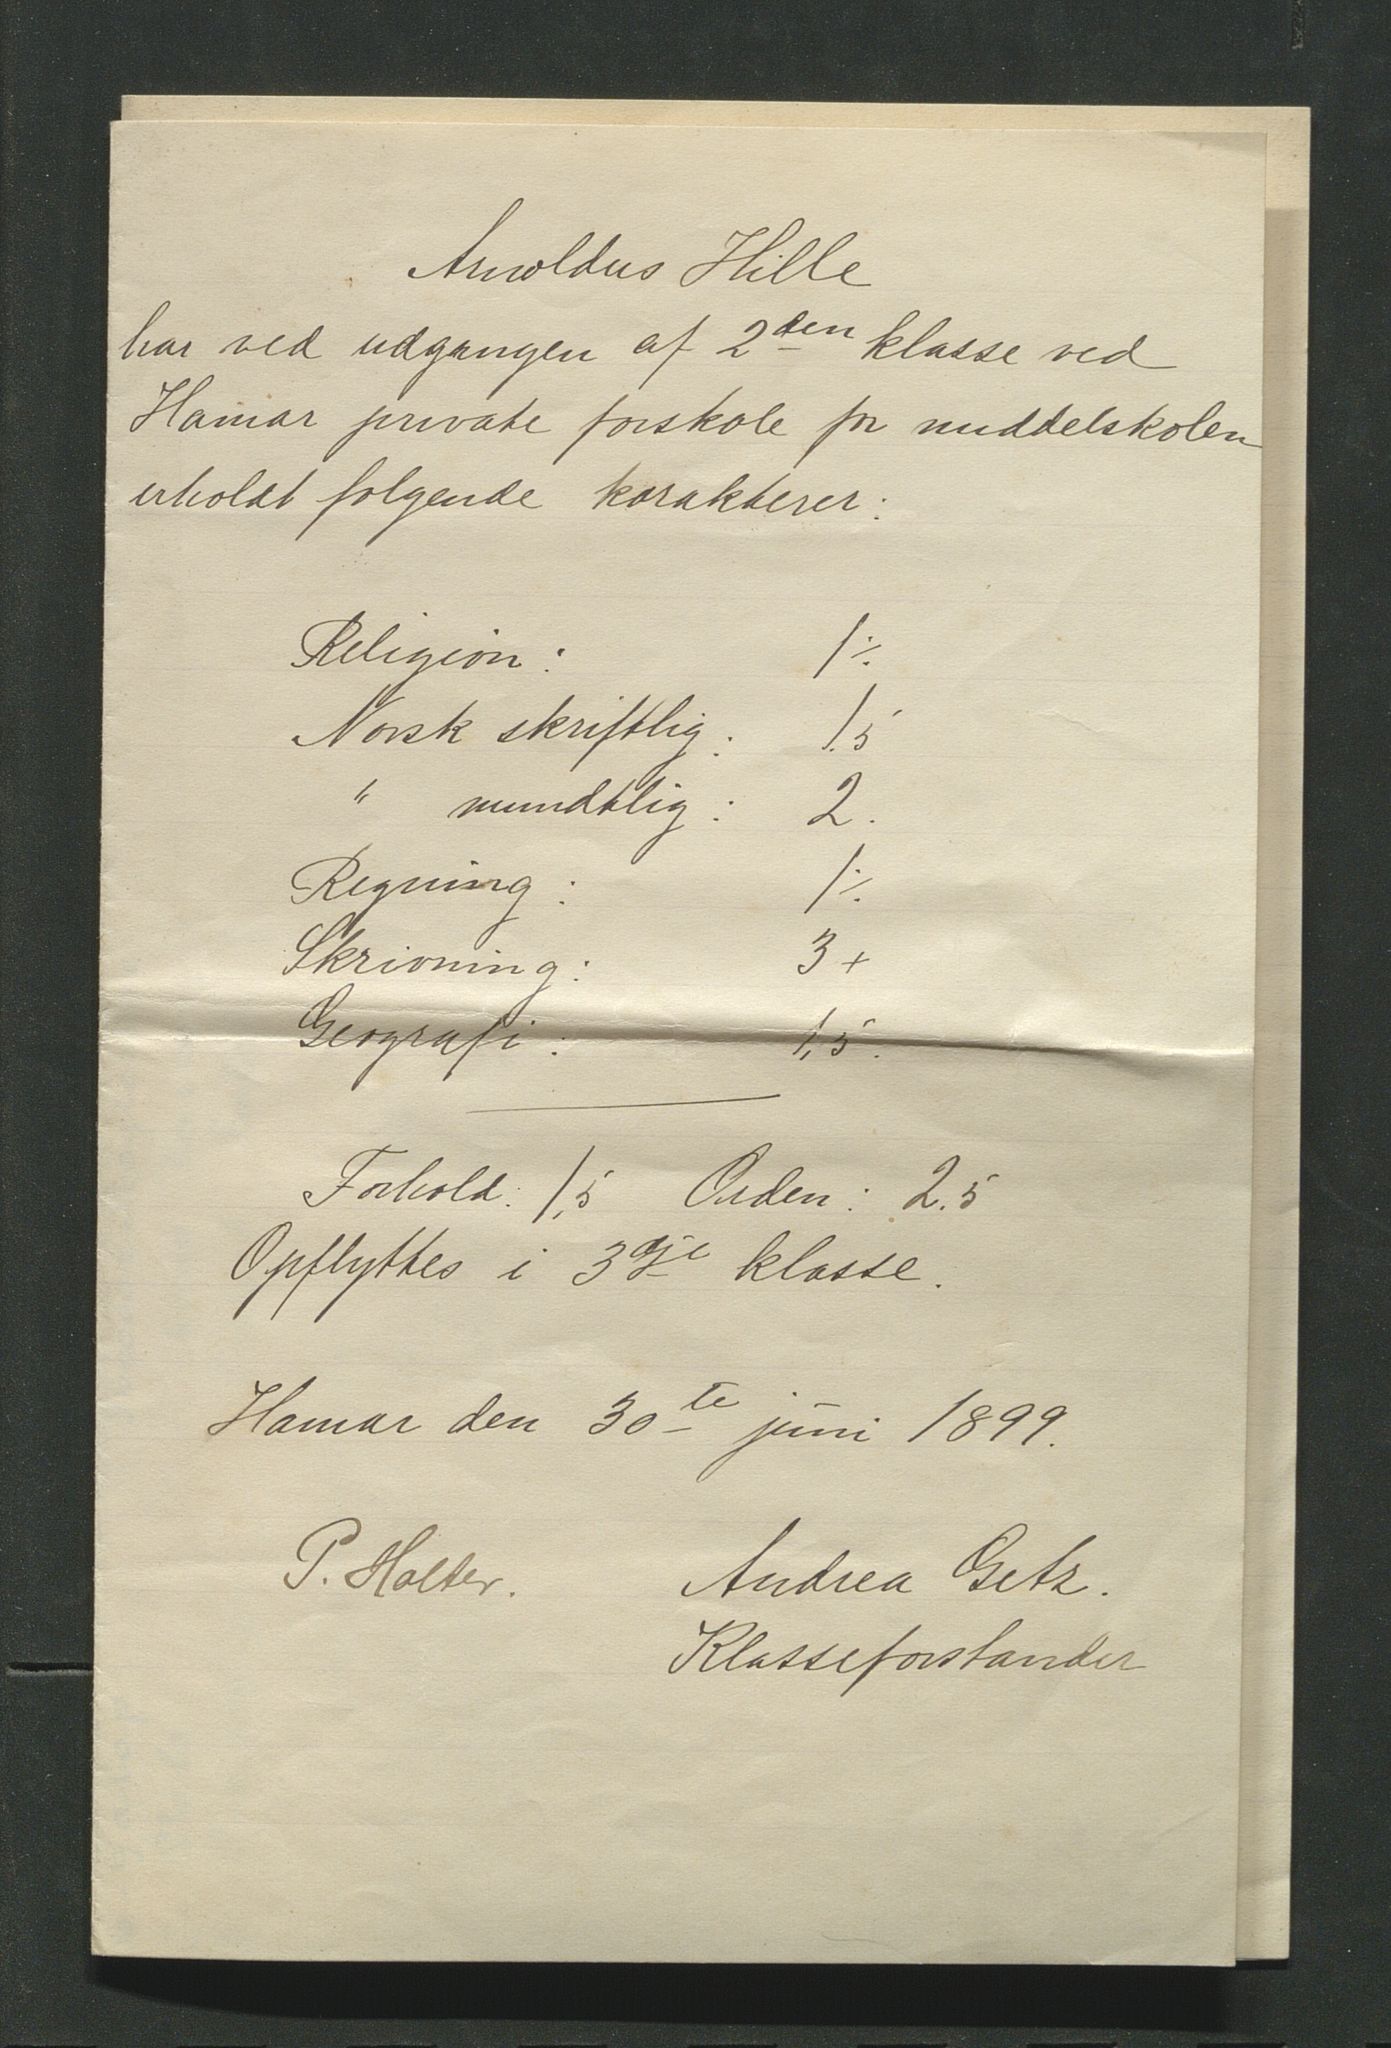 Arnoldus Hille
har ved udgangen af 2den klasse ved
Hamar private forskole for middelskolen
erholdt følgende karakterer:
Religion: 1÷
Norsk skriftlig: 1,5
" mundtlig: 2.
Regning: 1÷
Skrivning: 3+
Geografi: 1,5.
Forhold: 1,5 Orden: 2,5
Opflyttes i 3dje klasse.
Hamar den 30te juni 1899.
P. Holter. Andrea Getz.
Klasseforstander